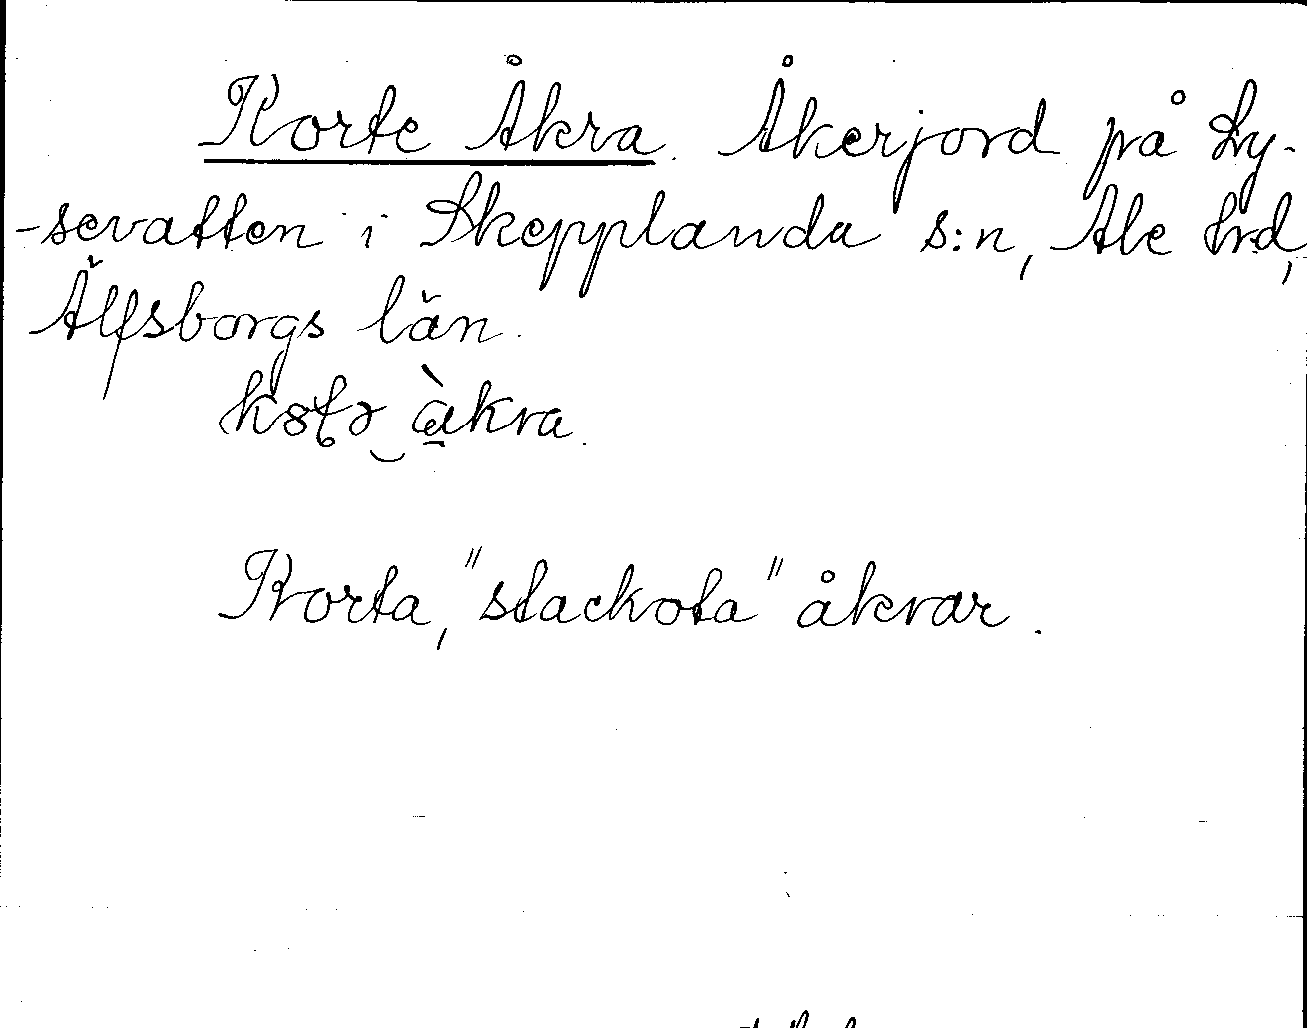 Korte Åkra. Åkerjord på Ly-
-sevatten i Skepplanda s:n, Ale hrd,
Älfsborgs län.
åkra.
Korta, "stackota" åkrar.